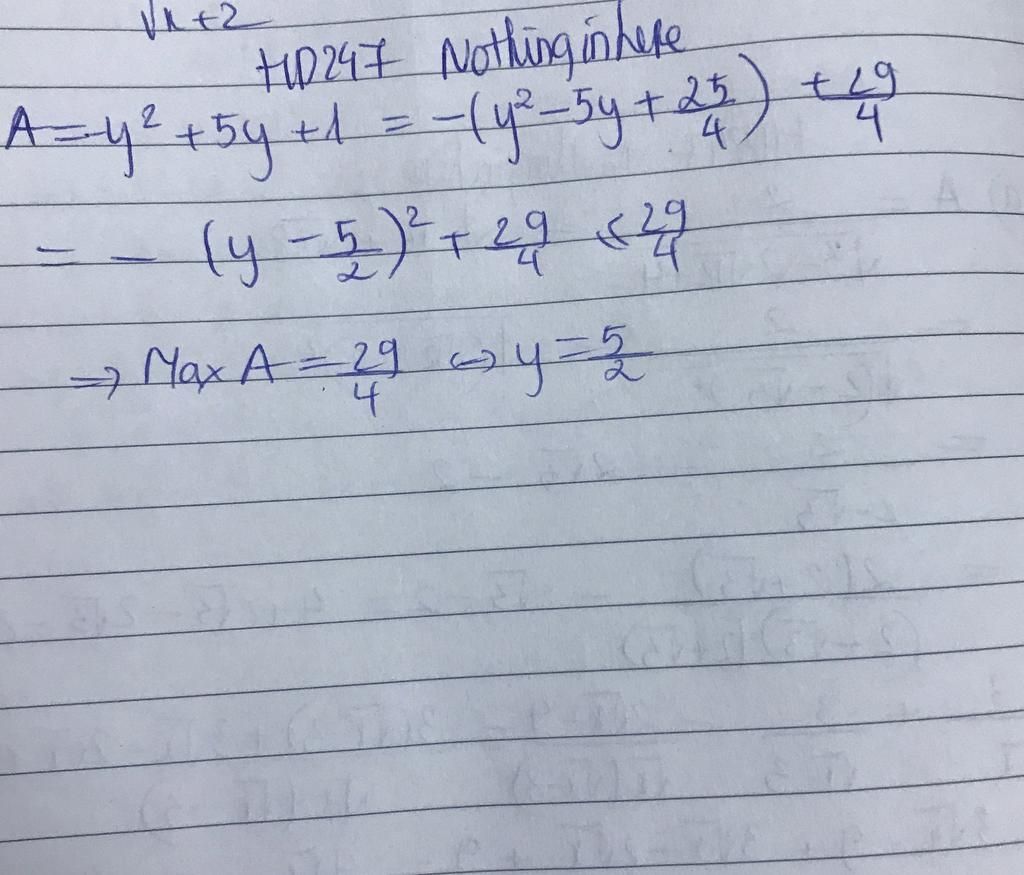 √x + 2
HD247 Nothing in here
A = -y² + 5y + 1 = -(y² - 5y + 25/4) + 29/4
= - (y - 5/2)² + 29/4 ≤ 29/4
⇒ Max A = 29/4 ⇔ y = 5/2